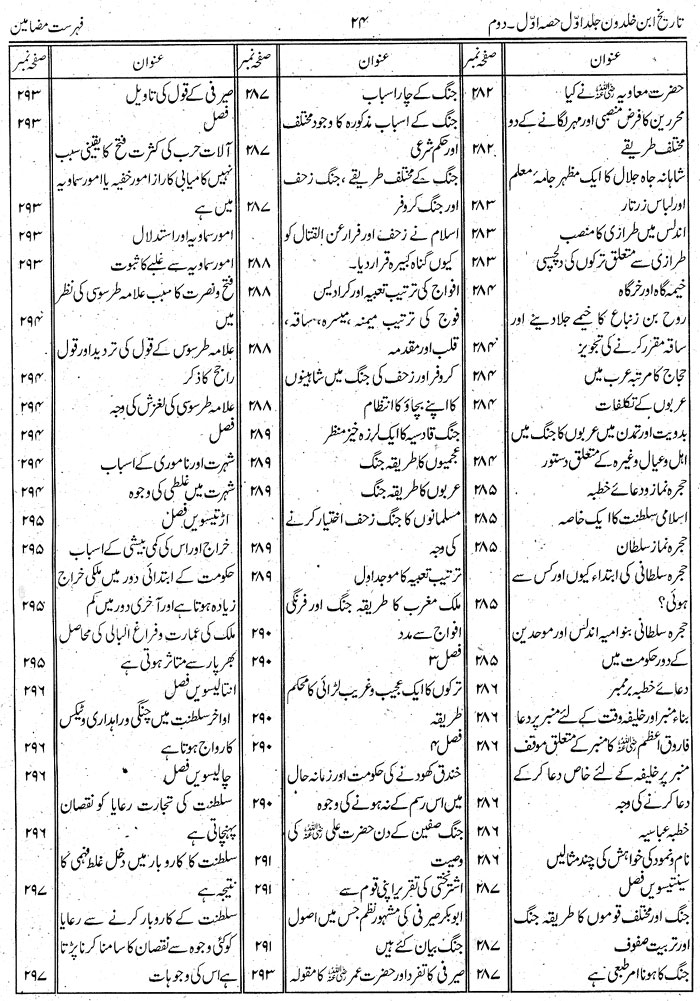 تاریخ ابن خلدون جلد اوّل حصہ اوّل ۔ دوم
۲۴
فہرست مضامین
عنوان
صفحہ نمبر
حضرت معاویہ رضی اللہ عنہ نے کیا ۲۸۲
محررین کا فرض منصبی اور مہر لگانے کے دو
مختلف طریقے ۲۸۲
شاہانہ جاہ جلال کا ایک مظہر جامۂ معلم
اور لباس زرتار ۲۸۳
اندلس میں طرازی کا منصب ۲۸۳
طرازی سے متعلق ترکوں کی دلچسپی ۲۸۳
خیمہ گاہ اور خرگاہ ۲۸۴
روح بن زنباع کا خیمے جلا دینے اور
ساقہ مقرر کرنے کی تجویز ۲۸۴
حجاج کا مرتبہ عرب میں ۲۸۴
عربوں کے تکلفات ۲۸۴
بدویت اور تمدن میں عربوں کا جنگ میں
اہل و عیال وغیرہ کے متعلق دستور ۲۸۴
حجرہ نماز و دعائے خطبہ ۲۸۵
اسلامی سلطنت کا ایک خاصہ ۲۸۵
حجرہ نماز سلطان ۲۸۵
حجرہ سلطانی کی ابتداء کیوں اور کس سے
ہوئی؟ ۲۸۵
حجرہ سلطانی بنو امیہ اندلس اور موحدین
کے دور حکومت میں ۲۸۵
دعائے خطبہ بر ممبر ۲۸۶
بناء منبر اور خلیفہ وقت کے لئے منبر پر دعا ۲۸۶
فاروق اعظم رضی اللہ عنہ کا منبر کے متعلق موقف ۲۸۶
منبر پر خلیفہ کے لئے خاص دعا کر کے
دعا کرنے کی وجہ ۲۸۶
خطبہ عباسیہ ۲۸۶
نام و نمود کی خواہش کی چند مثالیں ۲۸۶
سینتیسویں فصل ۲۸۷
جنگ اور مختلف قوموں کا طریقہ جنگ
اور تربیت صفوف ۲۸۷
جنگ کا ہونا امر طبعی ہے ۲۸۷
عنوان
صفحہ نمبر
جنگ کے چار اسباب ۲۸۷
جنگ کے اسباب مذکورہ کا وجود مختلف
اور حکم شرعی ۲۸۷
جنگ کے مختلف طریقے، جنگ زحف
اور جنگ کروفر ۲۸۷
اسلام نے زحف اور فرار عن القتال کو
کیوں گناہ کبیرہ قرار دیا۔ ۲۸۸
افواج کی ترتیب تعبیہ اور کرادیس ۲۸۸
فوج کی ترتیب میمنہ، میسرہ، ساقہ،
قلب اور مقدمہ ۲۸۸
کروفر اور زحف کی جنگ میں شاہینوں
کا اپنے بچاؤ کا انتظام ۲۸۸
جنگ قادسیہ کا ایک لرزہ خیز منظر ۲۸۹
عجمیوں کا طریقہ جنگ ۲۸۹
عربوں کا طریقہ جنگ ۲۸۹
مسلمانوں کا جنگ زحف اختیار کرنے
کی وجہ ۲۸۹
ترتیب تعبیہ کا موجد اول ۲۸۹
ملک مغرب کا طریقہ جنگ اور فرنگی
افواج سے مدد ۲۹۰
فصل ۳ ۲۹۰
ترکوں کا ایک عجیب و غریب لڑائی کا محکم
طریقہ ۲۹۰
فصل ۴ ۲۹۰
خندق کھودنے کی حکومت اور زمانہ حال
میں اس رسم کے نہ ہونے کی وجوہ ۲۹۰
جنگ صفین کے دن حضرت علی رضی اللہ عنہ کی
وصیت ۲۹۱
اشتر نخعی کی تقریر اپنی قوم سے ۲۹۱
ابوبکر صیرفی کی مشہور نظم جس میں اصول
جنگ بیان کئے ہیں ۲۹۱
صیرفی کا تفرد اور حضرت عمر رضی اللہ عنہ کا مقولہ ۲۹۳
عنوان
صفحہ نمبر
صیرفی کے قول کی تاویل ۲۹۳
فصل ۲۹۳
آلات حرب کی کثرت فتح کا یقینی سبب
نہیں کامیابی کا راز امور خفیہ یا امور سماویہ
میں ہے ۲۹۳
امور سماویہ اور استدلال ۲۹۳
امور سماویہ سے غلبے کا ثبوت ۲۹۳
فتح و نصرت کا سبب علامہ طرسوسی کی نظر
میں ۲۹۴
علامہ طرسوس کے قول کی تردید اور قول
راجح کا ذکر ۲۹۴
علامہ طرسوسی کی لغزش کی وجہ ۲۹۴
فصل ۲۹۴
شہرت اور ناموری کے اسباب ۲۹۴
شہرت میں غلطی کی وجوہ ۲۹۴
اڑتیسویں فصل ۲۹۵
خراج اور اس کی کمی بیشی کے اسباب ۲۹۵
حکومت کے ابتدائی دور میں ملکی خراج
زیادہ ہوتا ہے اور آخری دور میں کم ۲۹۵
ملک کی عمارت و فراغ البالی کی محاصل
بھر پار سے متاثر ہوتی ہے ۲۹۵
انتالیسویں فصل ۲۹۶
اواخر سلطنت میں چنگی و راہداری و ٹیکس
کا رواج ہوتا ہے ۲۹۶
چالیسویں فصل ۲۹۶
سلطنت کی تجارت رعایا کو نقصان
پہنچاتی ہے ۲۹۶
سلطنت کا کاروبار میں دخل غلط فہمی کا
نتیجہ ہے ۲۹۷
سلطنت کے کاروبار کرنے سے رعایا
کو کئی وجوہ سے نقصان کا سامنا کرنا پڑتا
ہے اس کی وجوہات ۲۹۷